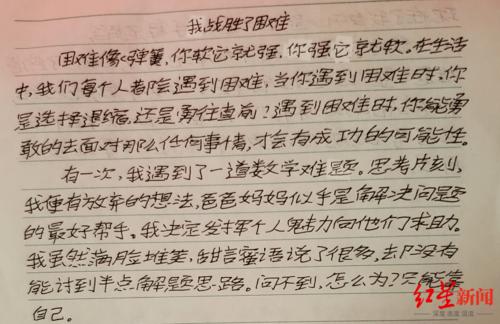 我战胜了困难
困难像弹簧,你软它就强,你强它就软。在生活
中,我们每个人都会遇到困难,当你遇到困难时,你
是选择退缩,还是勇往直前?遇到困难时,你能勇
敢的去面对那么任何事情,才会有成功的可能性。
有一次,我遇到了一道数学难题。思考片刻,
我便有放弃的想法,爸爸妈妈似乎是解决问题
的最好帮手。我决定发挥个人魅力向他们求助。
我虽然满脸堆笑,甜言蜜语说了很多,却没有
能讨到半点解题思路。问不到,怎么办?只能靠
自己。
红星新闻
深度 态度 温度